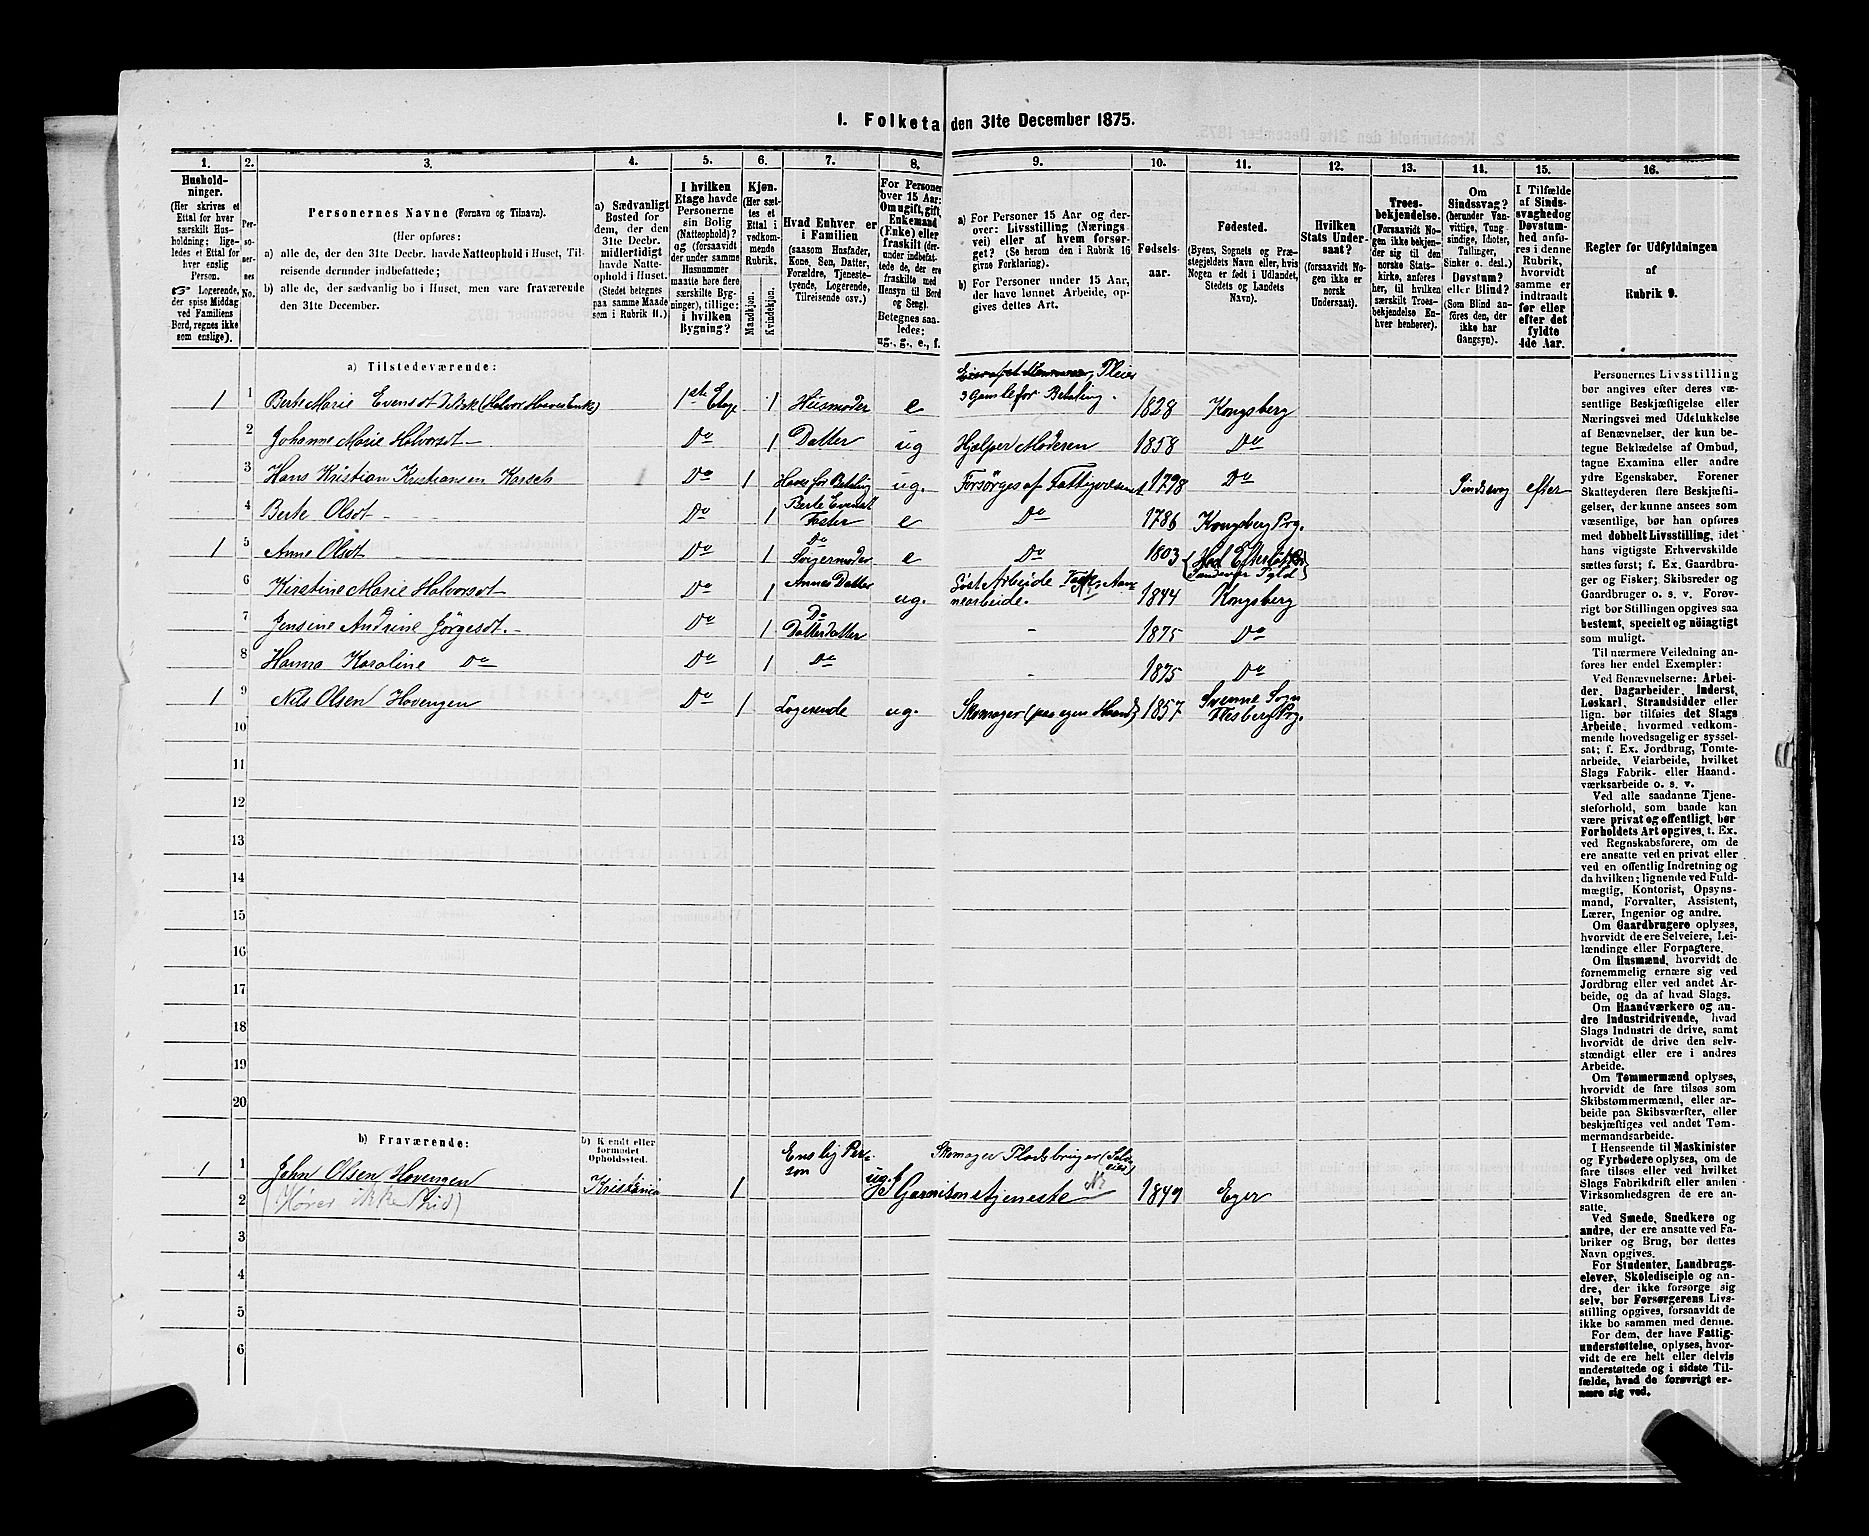 1. Folketa den 31te December 1875.
1. 2. 3. 4. 5. 6. 7. 8. 9. 10. 11. 12. 13. 14. 15. 16.
Hushold-
ninger.
(Her skrives et
Ettal for hver
særskilt Hus-
holdning; lige-
ledes et Ettal for
hver enslig
Person.
☞ Logerende,
der spise Middag
ved Familiens
Bord, regnes ikke
som enslige).
Per-
so-
ner-
nes
No.
Personernes Navne (Fornavn og Tilnavn).
(Her opføres:
a) alle de, der den 31te Decbr. havde Natteophold i Huset, Til-
reisende derunder indbefattede;
b) alle de, der sædvanlig bo i Huset, men vare fraværende
den 31te December.
a) Sædvanligt
Bosted for
dem, der den
31te Decbr.
midlertidigt
havde Natte-
ophold i Huset.
(Stedet betegnes
paa samme Maade
som i Rubrik 11.)
I hvilken
Etage havde
Personerne
sin Bolig
(Natteophold)?
og (forsaavidt
der under samme
Husnummer
maatte høre flere
særskilte Byg-
ninger), tillige:
i hvilken
Bygning?
Kjøn.
(Her sæt-
tes et
Ettal i
vedkom-
mende
Rubrik.
Mandkjøn.
Kvindekjøn.
Hvad Enhver er
i Familien
(saasom Husfader,
Kone, Søn, Datter,
Forældre, Tjeneste-
tyende, Logerende,
Tilreisende osv.)
For Personer
over 15 Aar:
Om ugift, gift,
Enkemand
(Enke) eller
fraskilt (der-
under indbefat-
tede de, der ere
fraskilte med
Hensyn til Bord
og Seng).
Betegnes saa-
ledes:
ug., g., e., f.
a) For Personer 15 Aar og der-
over: Livsstilling (Nærings-
vei) eller af hvem forsør-
get? (Se herom den i Rubrik 16
givne Forklaring).
b) For Personer under 15 Aar,
der have lønnet Arbeide, op-
gives dettes Art.
Fødsels-
aar.
Fødested.
(Byens, Sognets og Præ-
stegjeldets Navn eller, hvis
Nogen er født i Udlandet,
Stedets og Landets
Navn).
Hvilken
Stats Under-
saat?
(forsaavidt No-
gen ikke er
norsk
Undersaat).
Troes-
bekjendelse.
(Forsaavidt No-
gen ikke bekjen-
der sig til den
norske Stats-
kirke, anføres
her, til hvilken
særskilt Troes-
bekjendelse En-
hver henhører).
Om
Sindssvag?
(herunder Van-
vittige, Tung-
sindige, Idioter,
Tullinger,
Sinker o. desl.)
Døvstum?
eller Blind?
(Som Blind an-
føres den, der
ikke har
Gangsyn).
I Tilfælde
af Sinds-
svaghed og
Døvstum-
hed anfø-
res i denne
Rubrik,
hvorvidt
samme er
indtraadt
før eller
efter det
fyldte
4de Aar.
Regler for Udfyldningen
af
Rubrik 9.
a) Tilstedeværende:
1 1 Berte Marie Evensdt (Halvor Hoves Enke) 1ste Etage 1 Husmoder e Pleier 3 Gamle for Betaling. 1828 Kongsberg
2 Johanne Marie Halvorsdt Do 1 Datter ug Hjælper Moderen 1858 Do
3 Hans Kristian Kristiansen Karsch Do 1 Haves for Betaling ug. Forsørges af Fattigvæsenet 1798 Do Sindssvag efter
4 Berte Olsdt Do 1 Berte Evensdt Faster e Do 1786 Kongsberg Prg.
1 5 Anne Olsdt Do 1 Do Svigermoder e Do 1803 Sandsvær
6 Kirstine Marie Halvorsdt Do 1 Annes Datter ug. Løst Arbeide nearbeide. 1844 Kongsberg
7 Jensine Andrine Jørgesdt. Do 1 Do Datterdatter - 1875 Do
8 Hanna Karoline Do Do 1 Do - 1875 Do
1 9 Nils Olsen Hovengen Do 1 Logerende ug. Skomager (paa egen Haand) 1857 Svenne Sogn Flesberg Prg.
10
11
12
13
14
15
16
17
18
19
20
b) Fraværende:
b) Kendt eller
formodet
Opholdssted.
1 1 John Olsen Hovengen Kristania 1 Enslig Person ug. Skomager Pladsbruger (Selveier) I Garnisonstjeneste 1849 Eger
2 (Hører ikke hid)
3
4
5
6
Personernes Livsstilling
bør angives efter deres væ-
sentlige Beskjæftigelse eller
Næringsvei med Udelukkelse
af Benævnelser, der kun be-
tegne Beklædelse af Ombud,
tagne Examina eller andre
ydre Egenskaber. Forener
Skatteyderen flere Beskjæfti-
gelser, der kunne ansees som
væsentlige, bør han opføres
med dobbelt Livsstilling, idet
hans vigtigste Erhvervskilde
sættes først; f. Ex. Gaardbru-
ger og Fisker; Skibsreder og
Gaardbruger o. s. v. Forøv-
rigt bør Stillingen opgives saa
bestemt, specielt og nøiagtigt
som muligt.
Til nærmere Veiledning an-
føres her endel Exempler:
Ved Benævnelserne: Arbei-
der, Dagarbeider, Inderst,
Løskarl, Strandsidder eller
lign. bør tilføies det Slags
Arbeide, hvormed vedkom-
mende hovedsagelig er syssel-
sat; f. Ex. Jordbrug, Tomte-
arbeide, Veiarbeide, hvilket
Slags Fabrik- eller Haand-
værksarbeide o. s. v.
Ved alle saadanne Tjene-
steforhold, som baade kan
være privat og offentligt, bør
Forholdets Art opgives, t. Ex.
ved Regnskabsførere, om de
ere ansatte ved en privat eller
ved en offentlig Indretning og
da hvilken; lignende ved Fuld-
mægtig, Kontorist, Opsyns-
mand, Forvalter, Assistent,
Lærer, Ingeniør og andre.
Om Gaardbrugere oplyses,
hvorvidt de ere Selveiere, Lei-
lændinge eller Forpagtere.
Om Husmænd, hvorvidt de
fornemmelig ernære sig ved
Jordbrug eller ved andet Ar-
beide, og da af hvad Slags.
Om Haandværkere og an-
dre Industridrivende, hvad
Slags Industri de drive, samt
hvorvidt de drive den selv-
stændigt eller ere i andres
Arbeide.
Om Tømmermænd oplyses,
hvorvidt de fare tilsøs som
Skibstømmermænd, eller ar-
beide paa Skibsværfter, eller
beskjæftiges ved andet Tøm-
mermandsarbeide.
I Henseende til Maskinister
og Fyrbødere oplyses, om de
fare tilsøs eller ved hvilket
Slags Fabrikdrift eller anden
Virksomhedsgren de ere an-
satte.
Ved Smede, Snedkere og
andre, der ere ansatte ved Fa-
briker og Brug, bør dettes
Navn opgives.
For Studenter, Landbrugs-
elever, Skoledisciple og an-
dre, der ikke forsørge sig
selv, bør Forsørgerens Livs-
stilling opgives, forsaavidt de
ikke bo sammen med denne.
For dem, der have Fattig-
understøttelse, oplyses, hvor-
vidt de ere helt eller delvis
understøttede og i sidste Til-
fælde, hvad de forøvrigt er-
nære sig ved.